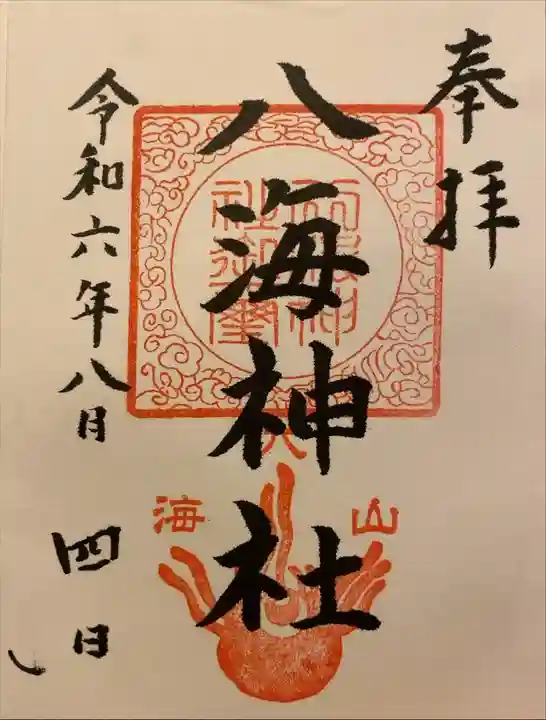 奉拝
八海神社
令和六年八月
四日
八
海
山